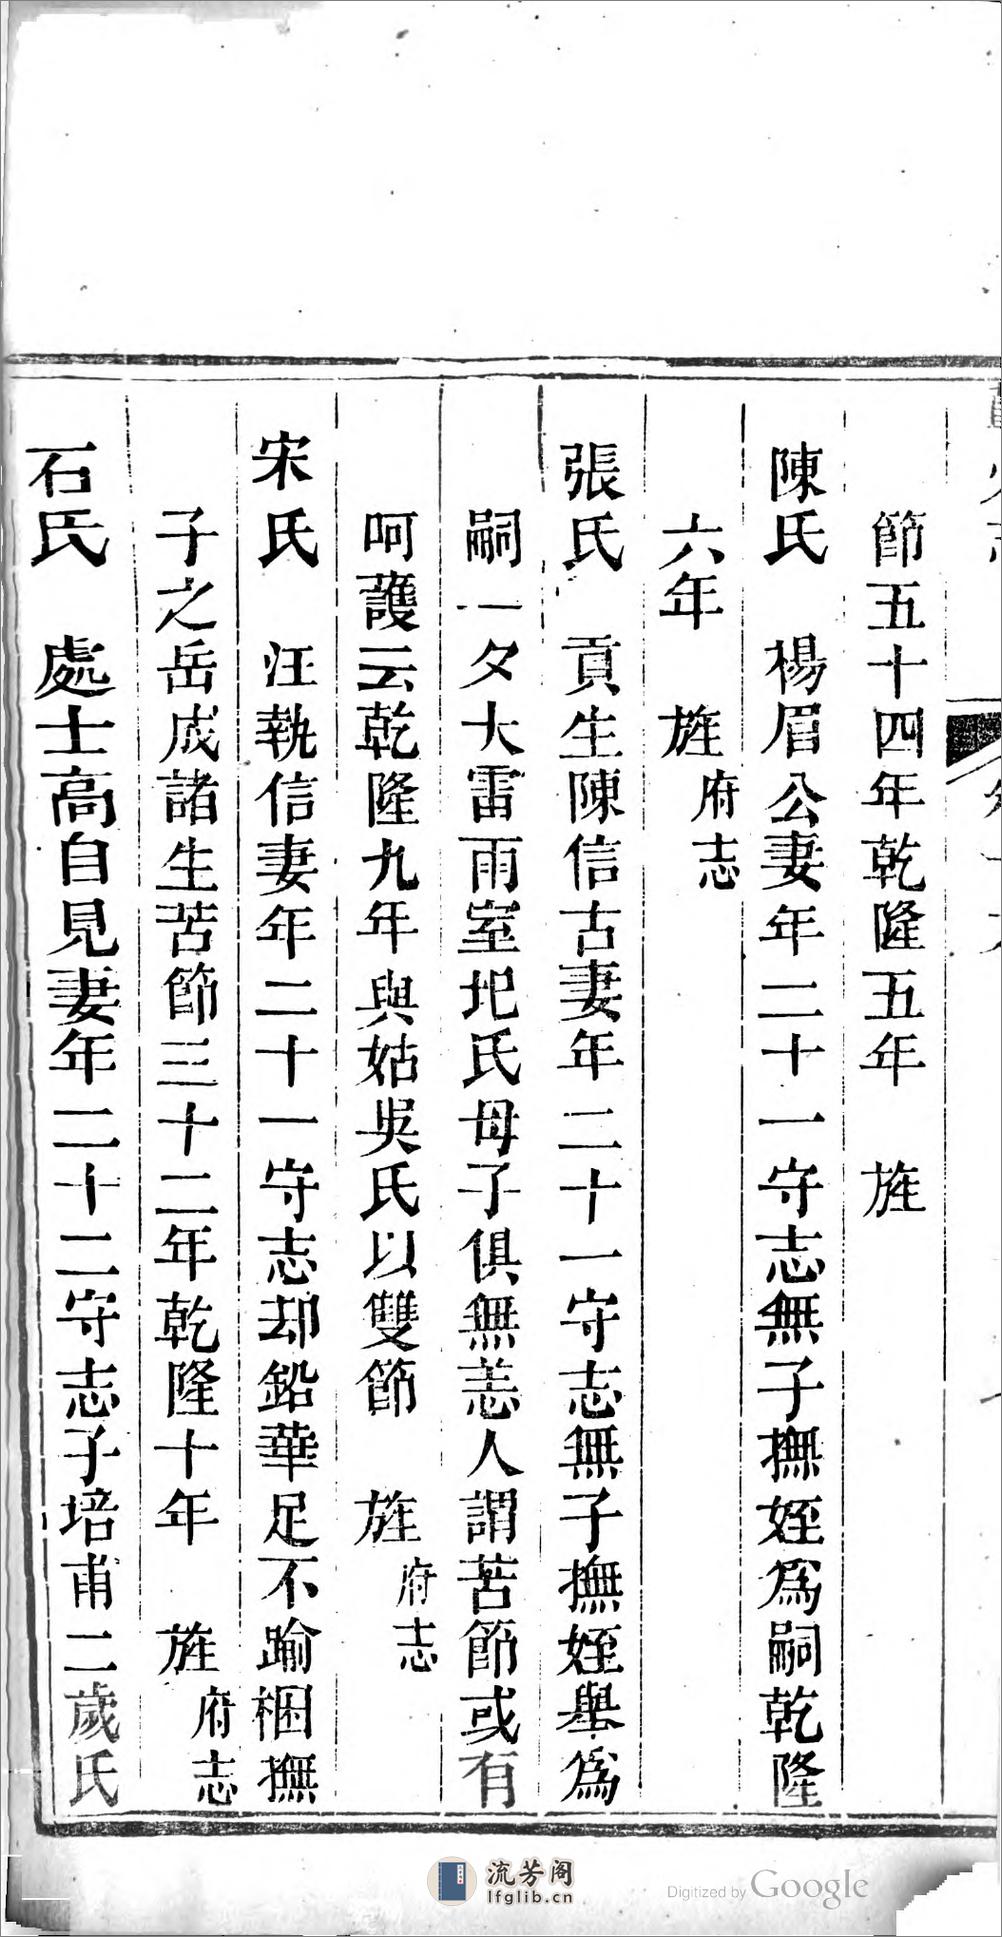 節五十四年乾隆五年　旌
陳氏　楊眉公妻年二十一守志無子撫姪為嗣乾隆
六年　旌府志
張氏　貢生陳信古妻年二十一守志無子撫姪舉為
嗣一夕大雷雨室圯氏母子俱無恙人謂苦節或有
呵護云乾隆九年與姑吳氏以雙節　旌府志
宋氏　汪執信妻年二十一守志却鉛華足不踰梱撫
子之岳成諸生苦節三十二年乾隆十年　旌府志
石氏　處士高自見妻年二十二守志子培甫二歲氏
流芳阁
lfglib.cn
Digitized by Google